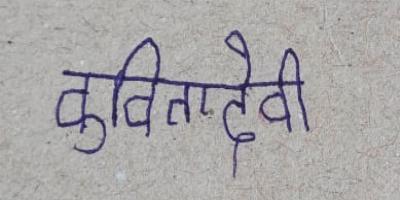 कविता देवी